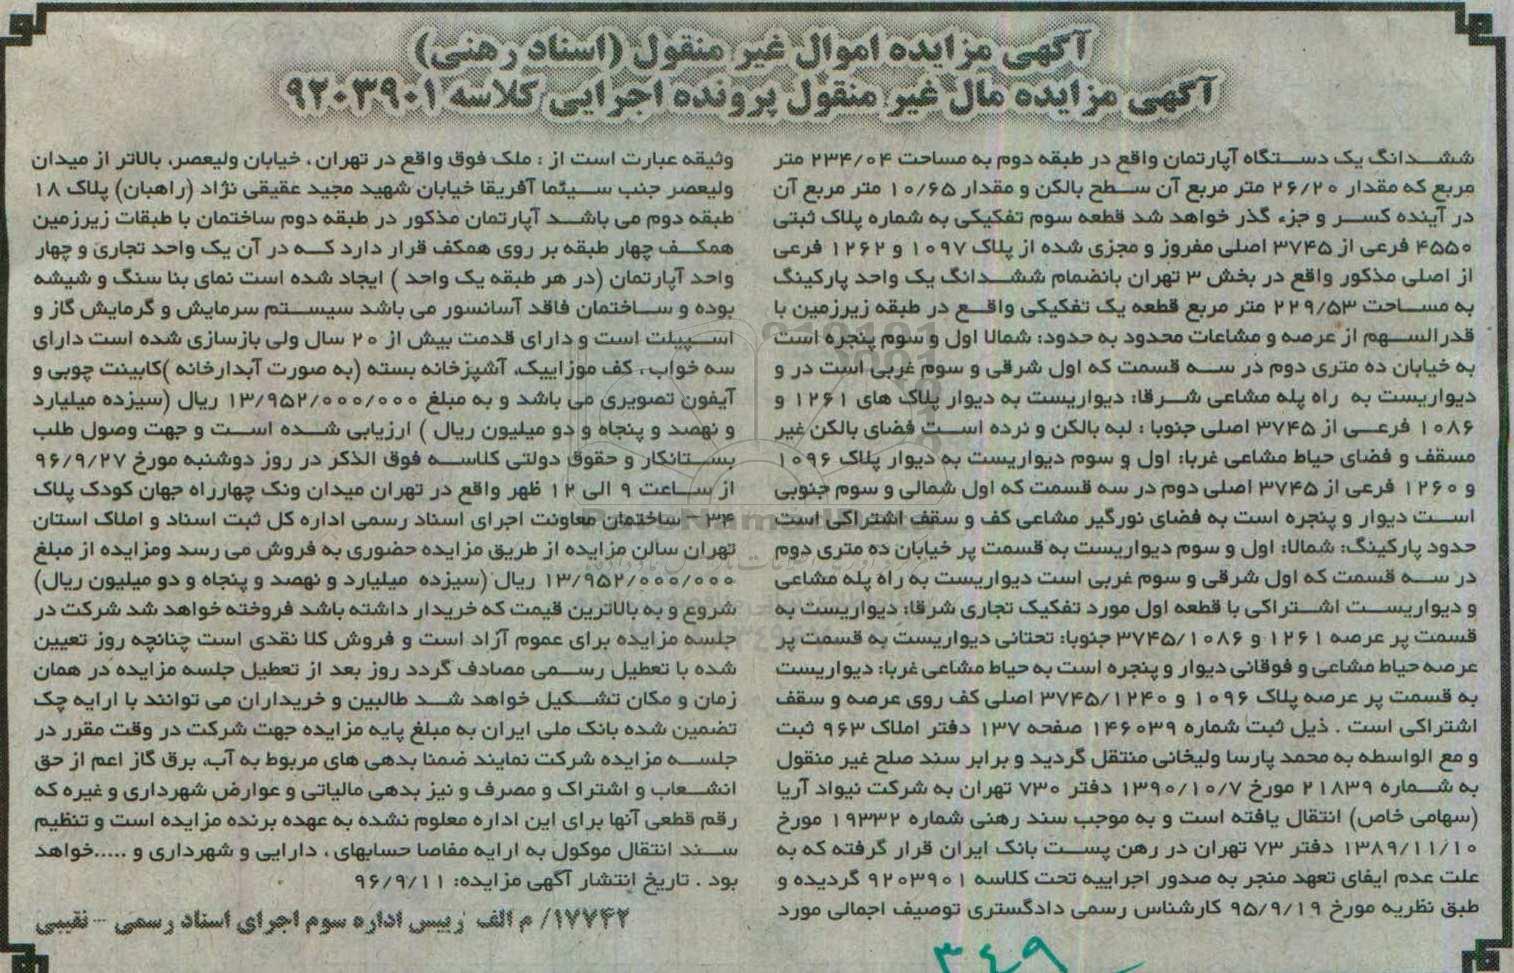 آگهی مزایده اموال غیر منقول (اسناد رهنی)
آگهی مزایده مال غیر منقول پرونده اجرایی کلاسه ۹۲۰۳۹۰۱
ششدانگ یک دستگاه آپارتمان واقع در طبقه دوم به مساحت ۲۳۴/۰۴ متر
مربع که مقدار ۲۶/۲۰ متر مربع آن سطح بالکن و مقدار ۱۰/۶۵ متر مربع آن
در آینده کسر و جزء گذر خواهد شد قطعه سوم تفکیکی به شماره پلاک ثبتی
۴۵۵۰ فرعی از ۳۷۴۵ اصلی مفروز و مجزی شده از پلاک ۱۰۹۷ و ۱۲۶۲ فرعی
از اصلی مذکور واقع در بخش ۳ تهران بانضمام ششدانگ یک واحد پارکینگ
به مساحت ۲۲۹/۵۳ متر مربع قطعه یک تفکیکی واقع در طبقه زیرزمین با
قدرالسهم از عرصه و مشاعات محدود به حدود: شمالا اول و سوم پنجره است
به خیابان ده متری دوم در سه قسمت که اول شرقی و سوم غربی است در و
دیواریست به راه پله مشاعی شرقا: دیواریست به دیوار پلاک های ۱۲۶۱ و
۱۰۸۶ فرعی از ۳۷۴۵ اصلی جنوبا : لبه بالکن و نرده است فضای بالکن غیر
مسقف و فضای حیاط مشاعی غربا: اول و سوم دیواریست به دیوار پلاک ۱۰۹۶
و ۱۲۶۰ فرعی از ۳۷۴۵ اصلی دوم در سه قسمت که اول شمالی و سوم جنوبی
است دیوار و پنجره است به فضای نورگیر مشاعی کف و سقف اشتراکی است
حدود پارکینگ: شمالا: اول و سوم دیواریست به قسمت پر خیابان ده متری دوم
در سه قسمت که اول شرقی و سوم غربی است دیواریست به راه پله مشاعی
و دیواریست اشتراکی با قطعه اول مورد تفکیک تجاری شرقا: دیواریست به
قسمت پر عرصه ۱۲۶۱ و ۳۷۴۵/۱۰۸۶ جنوبا: تحتانی دیواریست به قسمت پر
عرصه حیاط مشاعی و فوقانی دیوار و پنجره است به حیاط مشاعی غربا: دیواریست
به قسمت پر عرصه پلاک ۱۰۹۶ و ۳۷۴۵/۱۲۴۰ اصلی کف روی عرصه و سقف
اشتراکی است . ذیل ثبت شماره ۱۴۶۰۳۹ صفحه ۱۳۷ دفتر املاک ۹۶۳ ثبت
و مع الواسطه به محمد پارسا ولیخانی منتقل گردید و برابر سند صلح غیر منقول
به شماره ۲۱۸۳۹ مورخ ۱۳۹۰/۱۰/۷ دفتر ۷۳۰ تهران به شرکت نیواد آریا
(سهامی خاص) انتقال یافته است و به موجب سند رهنی شماره ۱۹۳۳۲ مورخ
۱۳۸۹/۱۱/۱۰ دفتر ۷۳ تهران در رهن پست بانک ایران قرار گرفته که به
علت عدم ایفای تعهد منجر به صدور اجراییه تحت کلاسه ۹۲۰۳۹۰۱ گردیده و
طبق نظریه مورخ ۹۵/۹/۱۹ کارشناس رسمی دادگستری توصیف اجمالی مورد
وثیقه عبارت است از : ملک فوق واقع در تهران ، خیابان ولیعصر، بالاتر از میدان
ولیعصر جنب سینما آفریقا خیابان شهید مجید عقیقی نژاد (راهبان) پلاک ۱۸
طبقه دوم می باشد آپارتمان مذکور در طبقه دوم ساختمان با طبقات زیرزمین
همکف چهار طبقه بر روی همکف قرار دارد که در آن یک واحد تجاری و چهار
واحد آپارتمان (در هر طبقه یک واحد ) ایجاد شده است نمای بنا سنگ و شیشه
بوده و ساختمان فاقد آسانسور می باشد سیستم سرمایش و گرمایش گاز و
اسپیلت است و دارای قدمت بیش از ۲۰ سال ولی بازسازی شده است دارای
سه خواب ، کف موزاییک، آشپزخانه بسته (به صورت آبدارخانه )کابینت چوبی و
آیفون تصویری می باشد و به مبلغ ۱۳/۹۵۲/۰۰۰/۰۰۰ ریال (سیزده میلیارد
و نهصد و پنجاه و دو میلیون ریال ) ارزیابی شده است و جهت وصول طلب
بستانکار و حقوق دولتی کلاسه فوق الذکر در روز دوشنبه مورخ ۹۶/۹/۲۷
از ساعت ۹ الی ۱۲ ظهر واقع در تهران میدان ونک چهارراه جهان کودک پلاک
۳۴ - ساختمان معاونت اجرای اسناد رسمی اداره کل ثبت اسناد و املاک استان
تهران سالن مزایده از طریق مزایده حضوری به فروش می رسد ومزایده از مبلغ
۱۳/۹۵۲/۰۰۰/۰۰۰ ریال (سیزده میلیارد و نهصد و پنجاه و دو میلیون ریال)
شروع و به بالاترین قیمت که خریدار داشته باشد فروخته خواهد شد شرکت در
جلسه مزایده برای عموم آزاد است و فروش کلا نقدی است چنانچه روز تعیین
شده با تعطیل رسمی مصادف گردد روز بعد از تعطیل جلسه مزایده در همان
زمان و مکان تشکیل خواهد شد طالبین و خریداران می توانند با ارایه چک
تضمین شده بانک ملی ایران به مبلغ پایه مزایده جهت شرکت در وقت مقرر در
جلسه مزایده شرکت نمایند ضمنا بدهی های مربوط به آب، برق گاز اعم از حق
انشعاب و اشتراک و مصرف و نیز بدهی مالیاتی و عوارض شهرداری و غیره که
رقم قطعی آنها برای این اداره معلوم نشده به عهده برنده مزایده است و تنظیم
سند انتقال موکول به ارایه مفاصا حسابهای ، دارایی و شهرداری و .....خواهد
بود . تاریخ انتشار آگهی مزایده: ۹۶/۹/۱۱
۱۷۷۴۲/ م الف رییس اداره سوم اجرای اسناد رسمی -- نقیبی
۳۴۹